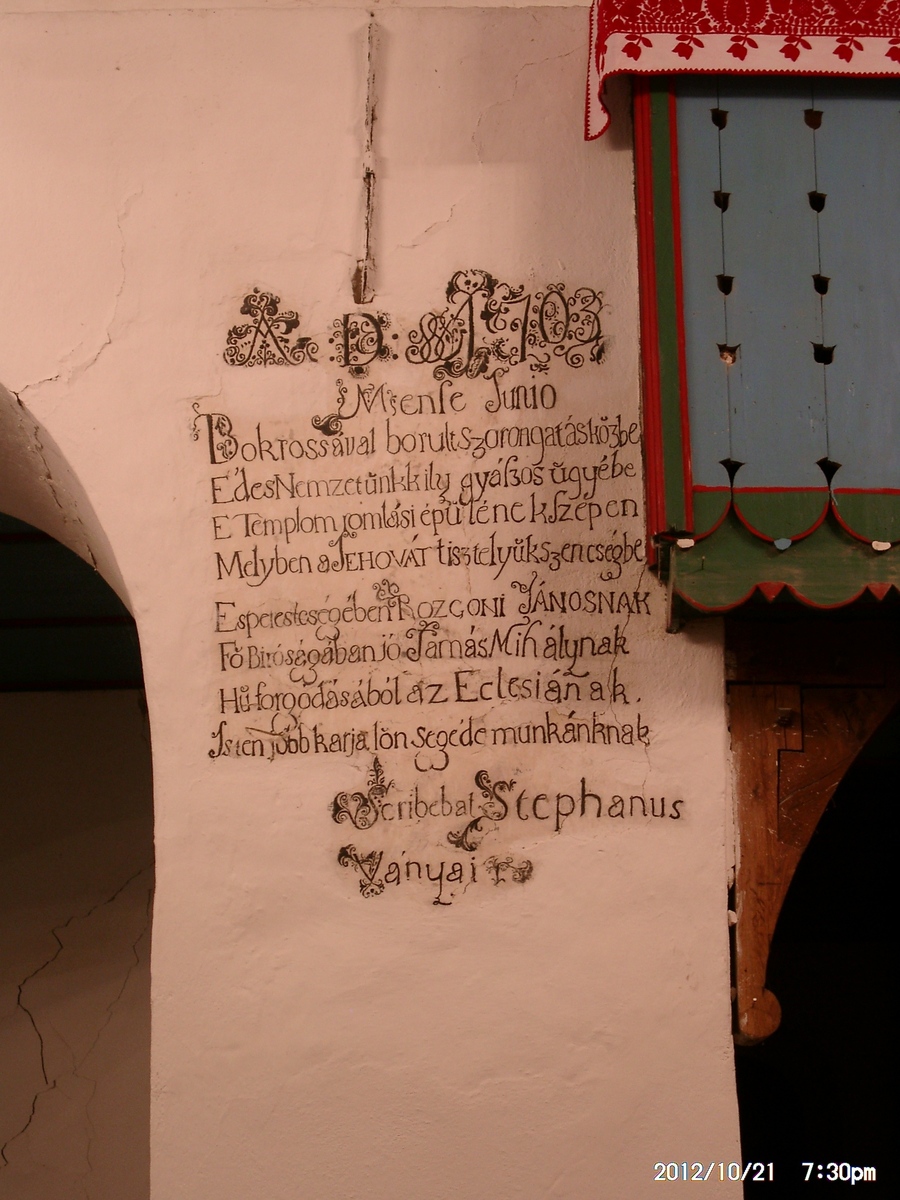 A. D: 1703
Mense Junio
Bokrossával borult szorongatás közbe
Édes Nemzetünkk ily gyászos ügyébe
E Templom romlási épülének szépen
Melyben a JEHOVÁT tisztelyük szencségbe
Esperesteségében ROZGONI JÁNOSNAK
Fő Biróságában jó Tamás Mihálynak
Hű forgodásából az Eclesiának.
Isten jobb karja lön segéde munkánknak
Scribebat Stephanus
Ványai
2012/10/21 7:30pm